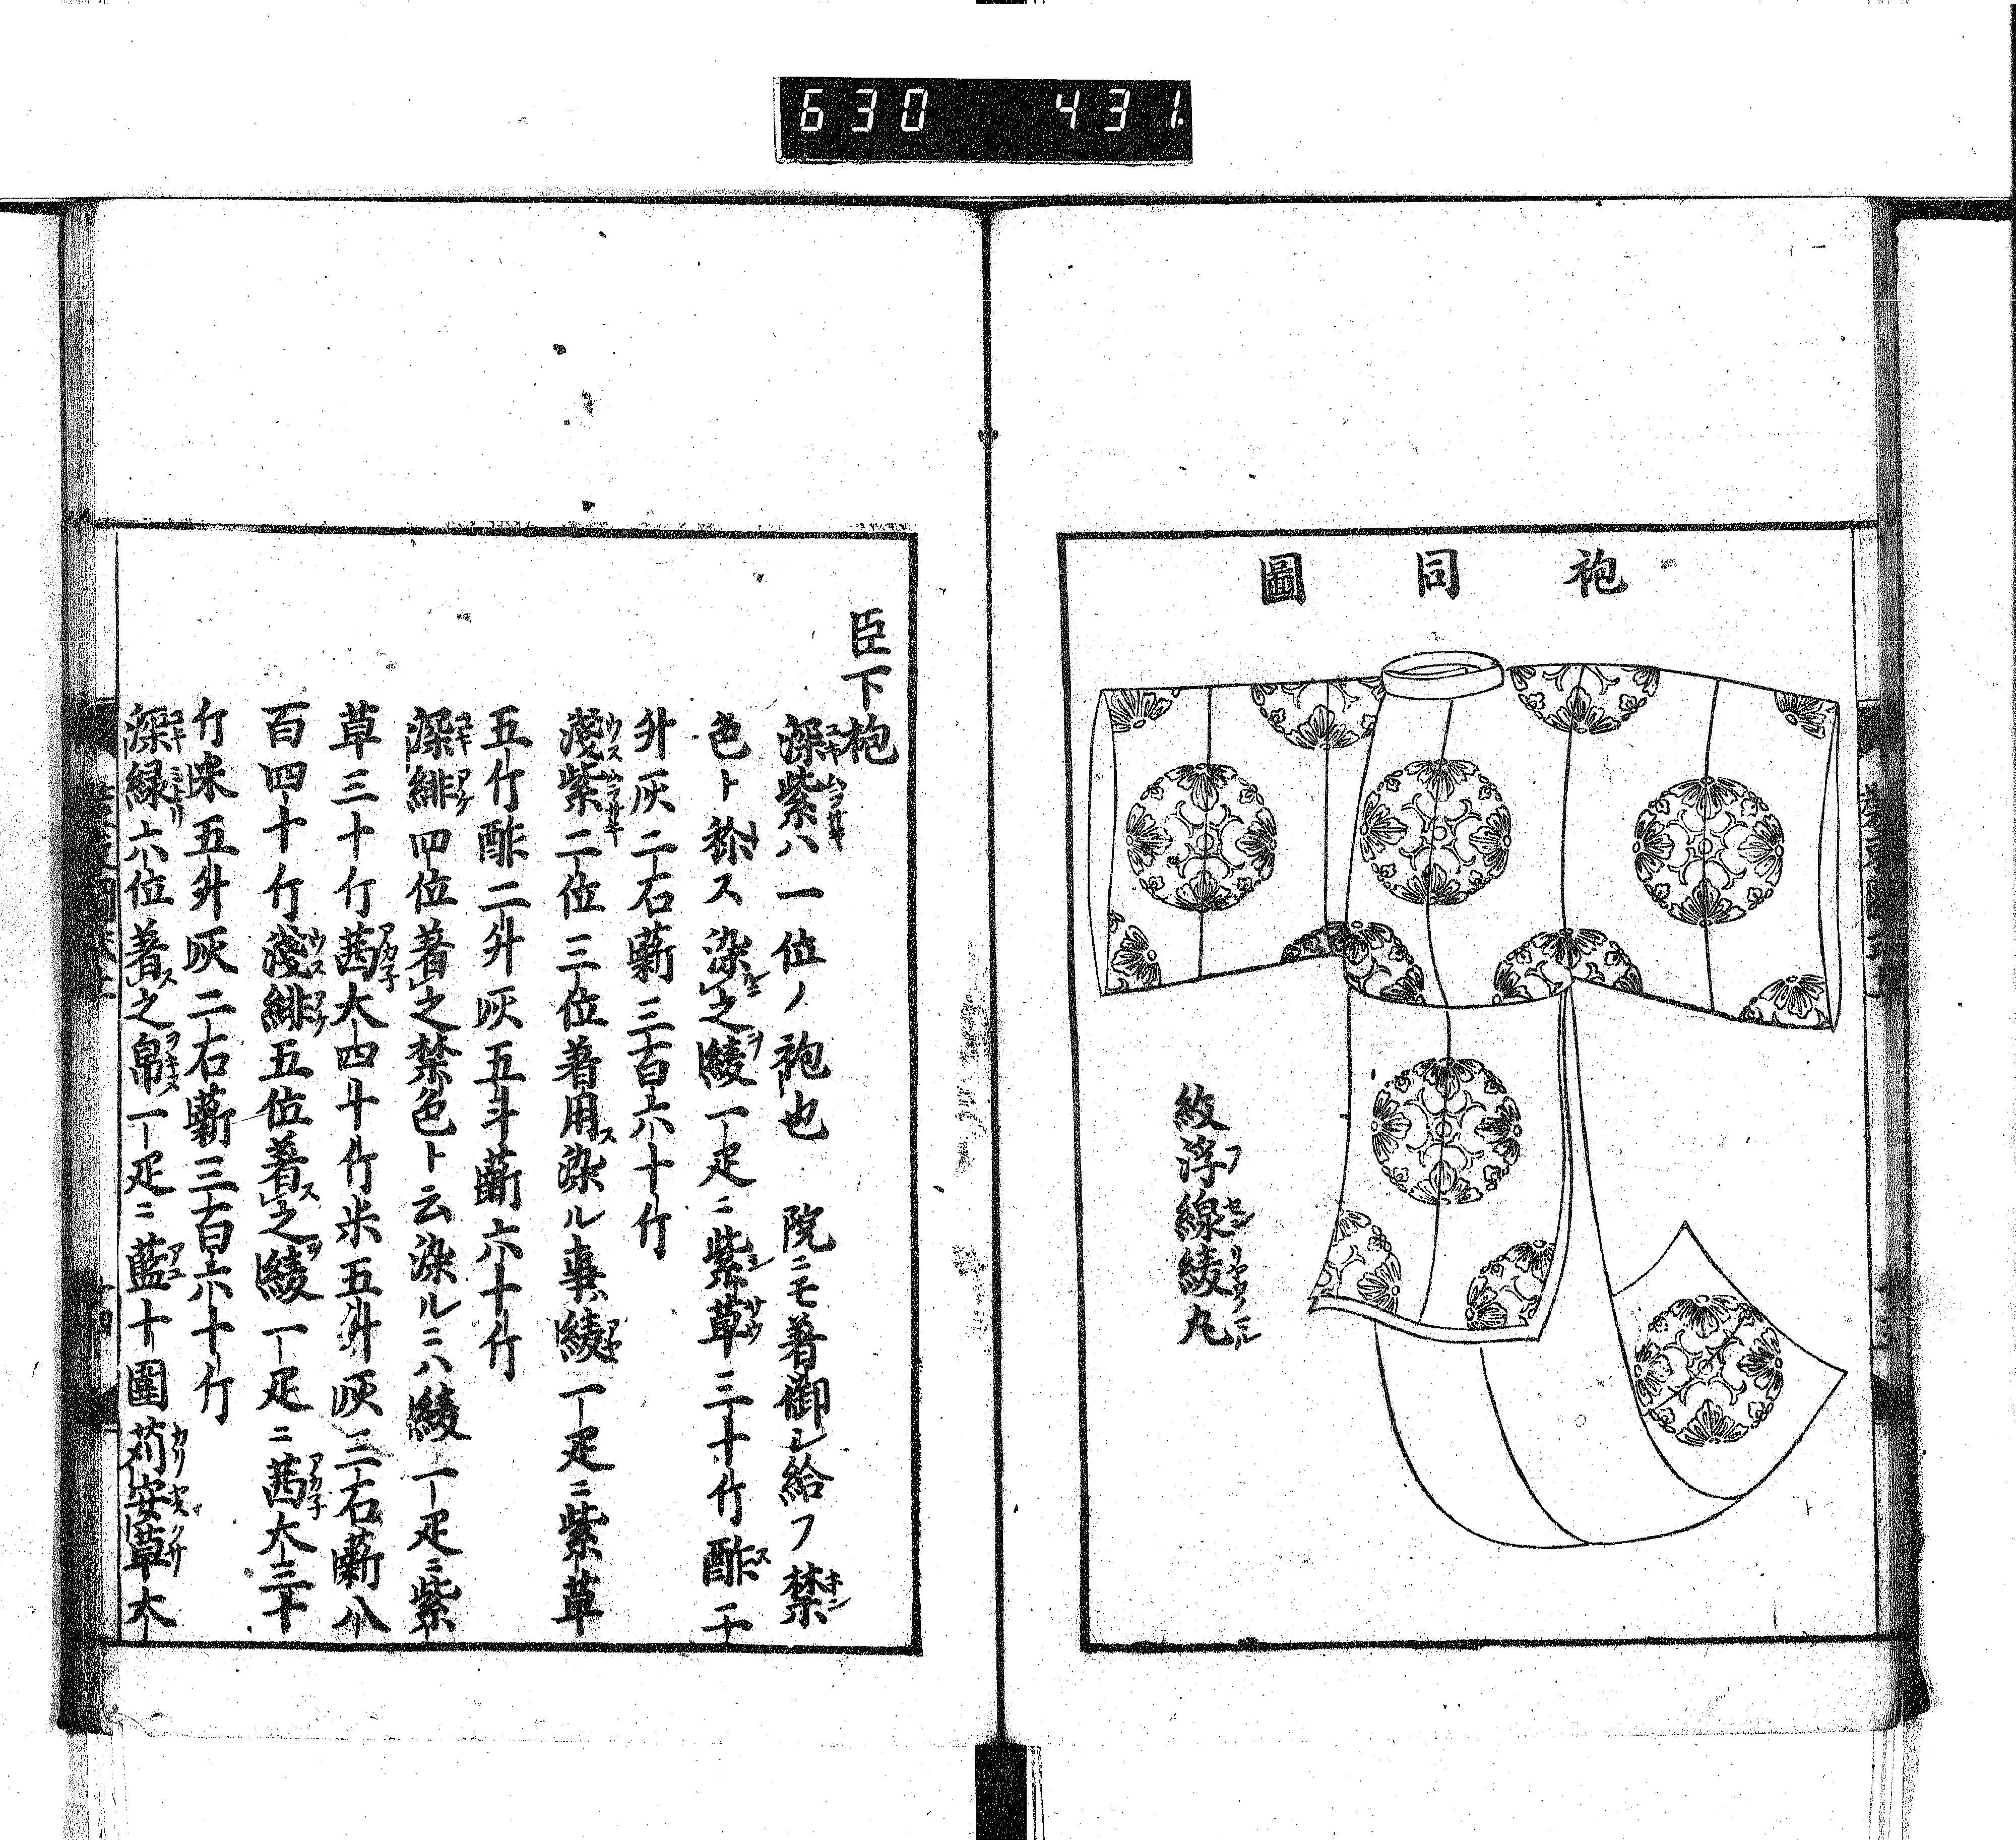 630 431.
袍同圖
紋浮線綾丸
臣下袍
深紫ハ一位ノ袍也 院ニモ著御シ給フ禁
色ト称ス染之綾一疋ニ紫草三十斤酢二
升灰二石薪三百六十斤
淺紫二位三位著用ス染ル事綾一疋ニ紫草
五斤酢二升灰五斗薪六十斤
深緋四位著之禁色ト云染ルニハ綾一疋ニ紫
草三十斤茜大四十斤米五升灰三石薪八
百四十斤淺緋五位著ス之綾一疋ニ茜大三十
斤米五升灰二石薪三百六十斤
深緑六位著ス之帛一疋ニ藍十圍苅安草大